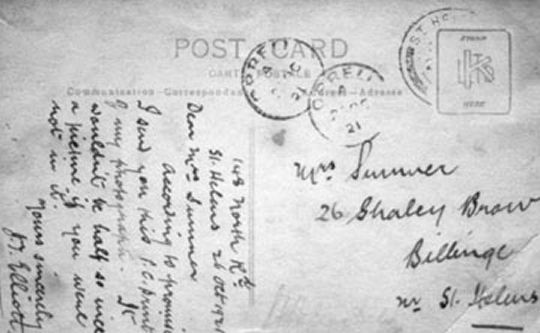 POST CARD
CARTE POSTALE
Communication - Correspondence
Address - Adresse
ORRELL
21
ORRELL
21
ST. HEL
STAMP
HERE
148 North Rd
St. Helens 26 Oct 1921
Dear Mrs Sumner
According to promise
I send you this P.C. Print
of my photograph. It
wouldn't be half so nice
a picture if you were
not in it.
Yours sincerely
J. J. Elliott
Mrs Sumner
26 Shaley Brow
Billinge
nr St. Helens